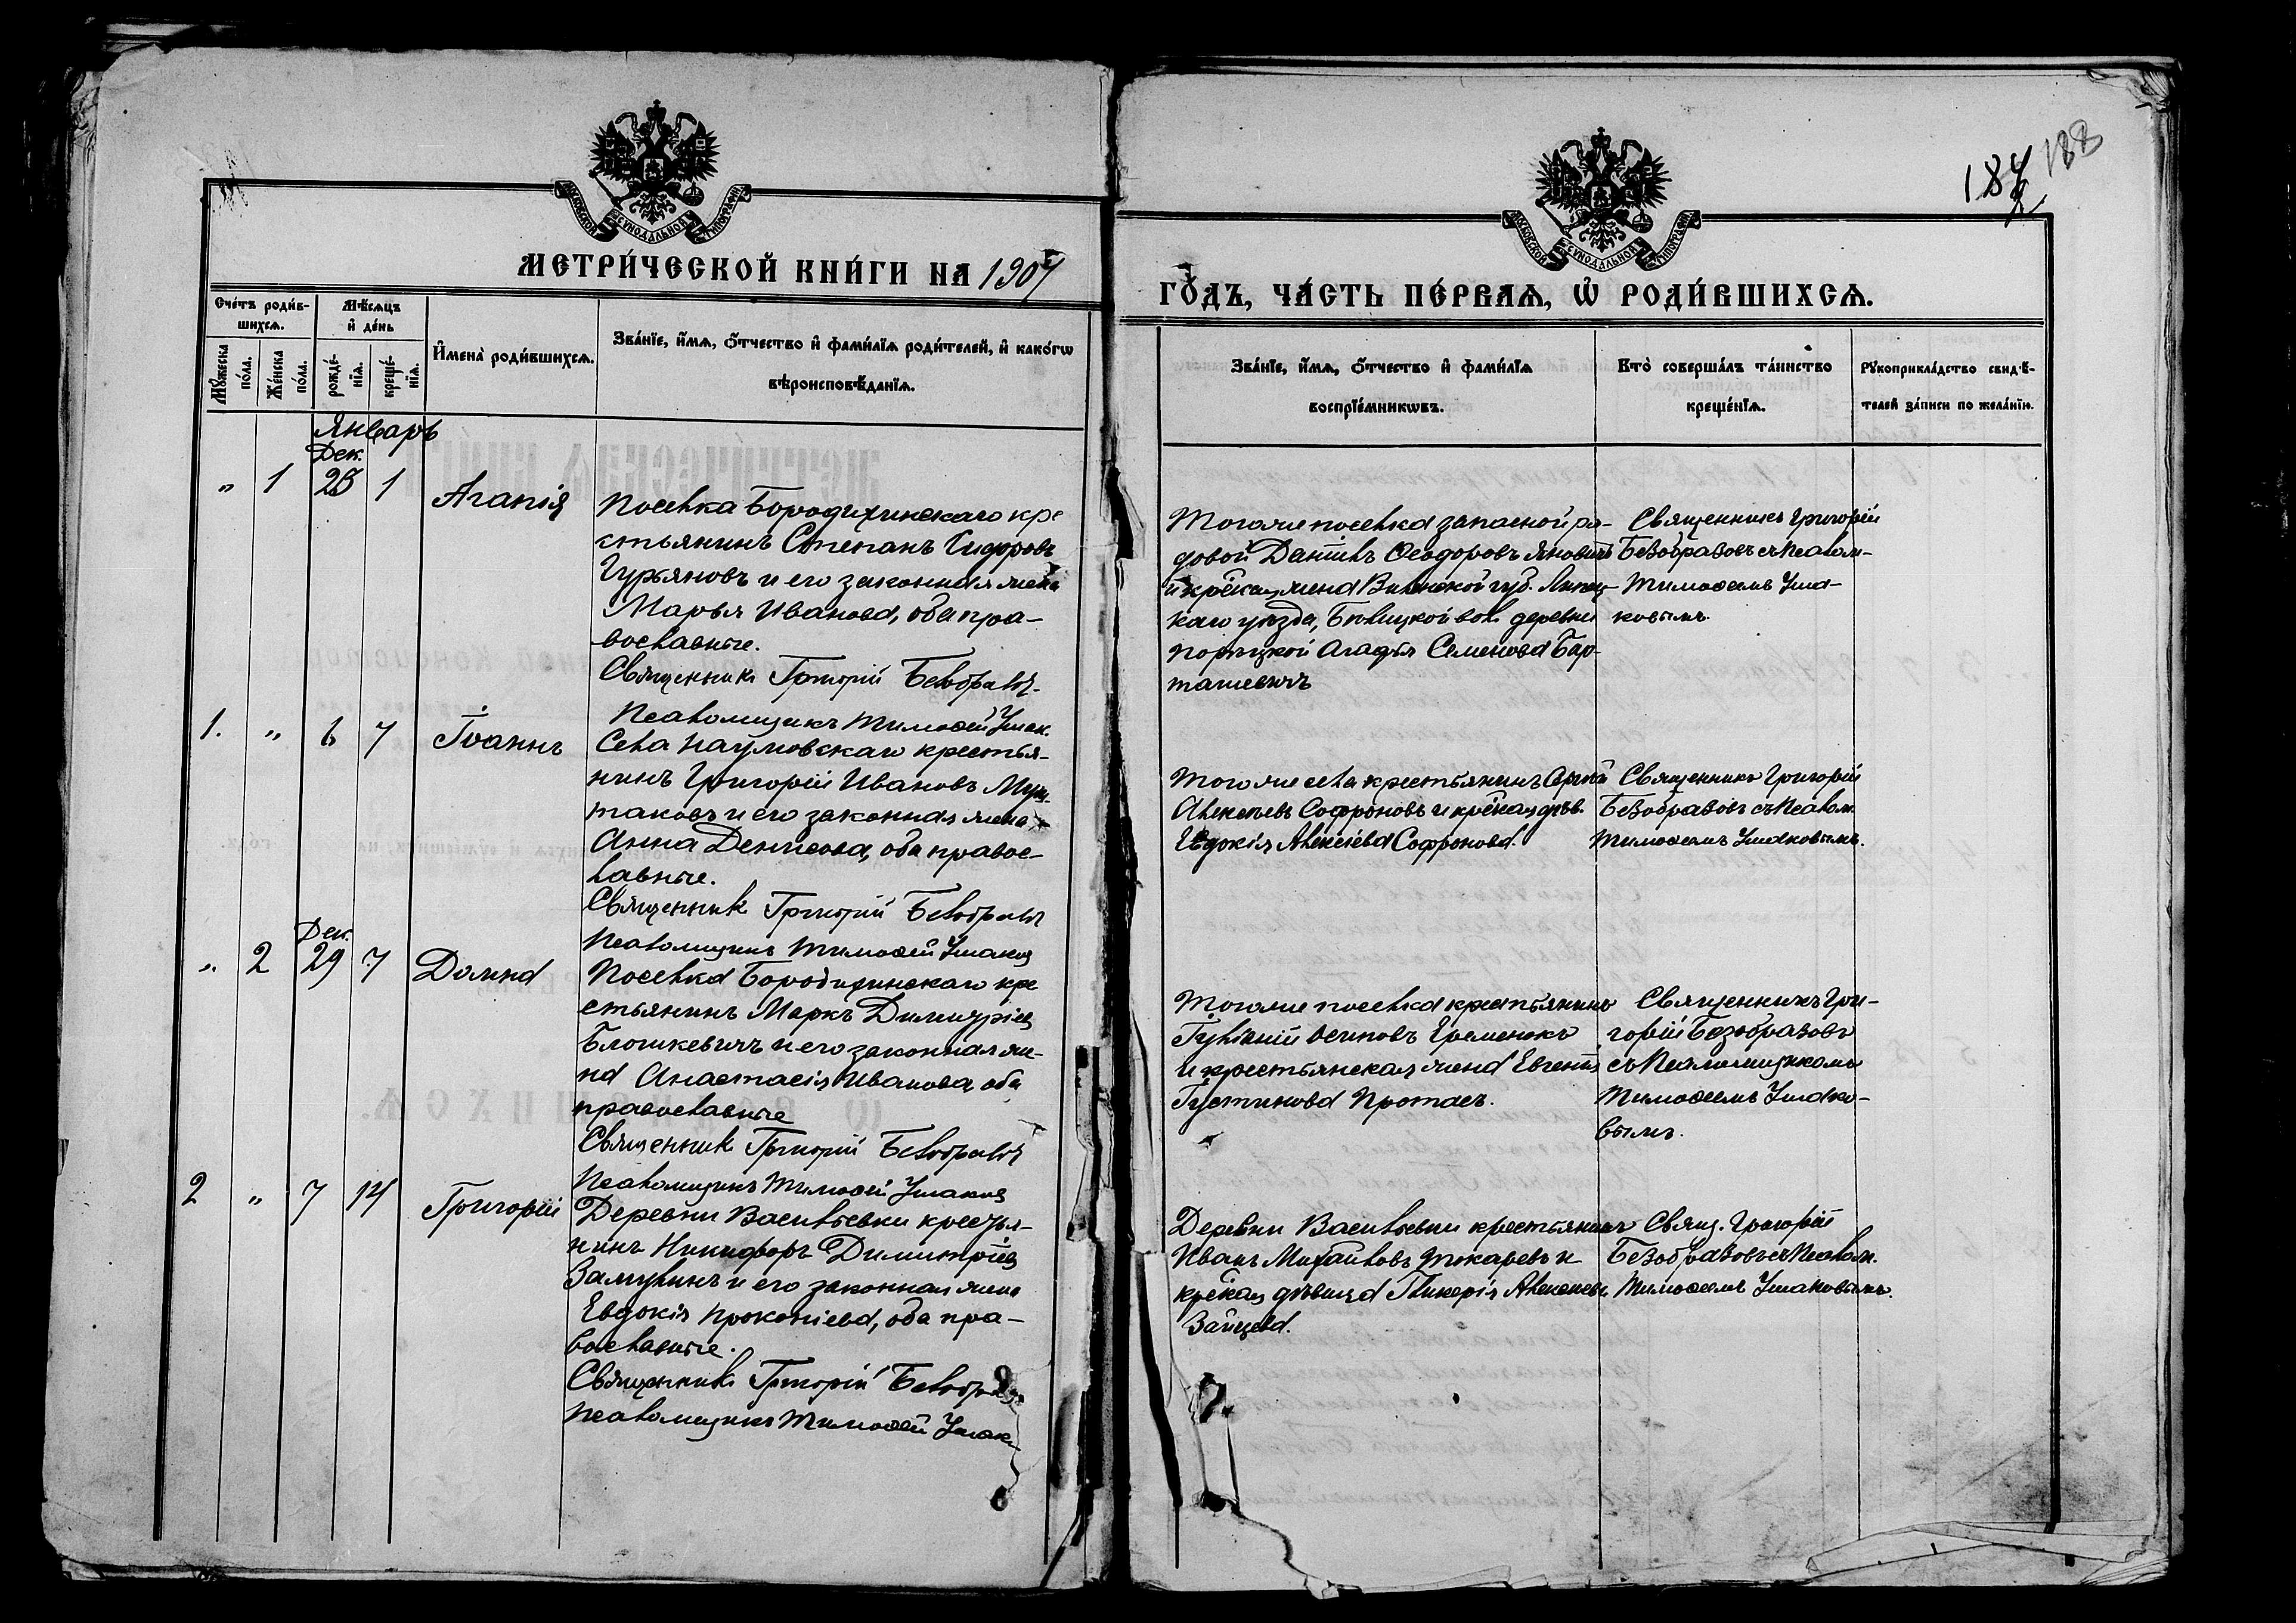 187 188
МОСКОВСКОЙ СѴНОДАЛЬНОЙ ТИПОГРАФІИ
МОСКОВСКОЙ СѴНОДАЛЬНОЙ ТИПОГРАФІИ
МЕТРИ́ЧЕСКОЙ КНИ́ГИ НА 1907
ГО́ДЪ, ЧА́СТЬ ПЕ́РВАѦ, Ѡ҆ РОДИ́ВШИХСѦ.
Сче́тъ роди́в-
шихсѧ.
Мꙋ́жеска по́ла.
Же́нска по́ла.
Мѣ́сѧцъ
и҆ де́нь
рожде́-
нїѧ.
креще́-
нїѧ.
И҆мена̀ роди́вшихсѧ.
Зва́нїе, и҆́мѧ, ѻ҆́тчество и҆ фами́лїѧ роди́телей, и҆ како́гѡ
вѣроисповѣ́данїѧ.
Зва́нїе, и҆́мѧ, ѻ҆́тчество и҆ фами́лїѧ
воспрїе́мникѡвъ.
Кто̀ соверша́лъ та́инство
креще́нїѧ.
Рꙋкоприкла́дство свидѣ́-
телей за́писи по жела́нїю.
Январь
Дек.
" 1 25 1 Агапія
Поселка Бородихинскаго кре
стьянинъ Степанъ Сидоровъ
Гурьяновъ и его законная жена
Марья Иванова, оба пра-
вославные.
Священникъ Григорій Безобразов
Псаломщикъ Тимоѳей Ушак.
Тогоже поселка запасной ря-
довой Данилъ Ѳеодоровъ Яновичъ
и кр҃ская жена Виленской губ.
каго уѣзда, вол. деревни
Агаѳья Семенова Бар-
ташевичъ
Священникъ Григорій
Безобразовъ съ Псалом-
Тимоѳеемъ Уша-
ковымъ.
1. " 6 7 Іоаннъ
Села Наумовскаго крестья-
нинъ Григорій Ивановъ Муш-
таковъ и его законная жена
Анна Денисова, оба правос-
лавные.
Священникъ Григорій Безобразов
Псаломщикъ Тимоѳей Ушаков
Тогоже села крестьянинъ
Алексѣевъ Софроновъ и кр҃ская дѣв.
Евдокія Алексѣева Софронова.
Священникъ Григорій
Безобразовъ съ Псалом.
Тимоѳеемъ Ушаковымъ.
Дек.
" 2 29 7 Домна
Поселка Бородихинскаго кре
стьянинъ Маркъ Димитріев
Блошкевичъ и его законная же-
на Анастасія Иванова, оба
православные
Священникъ Григорій Безобразов
Псаломщикъ Тимоѳей Ушаков
Тогоже поселка крестьянинъ
Іуліаній Осиповъ Еременокъ
и крестьянская жена Евгенія
Іустинова Протасъ.
Священникъ Гри-
горій Безобразовъ
съ Псаломщикомъ
Тимоѳеемъ Ушако-
вымъ.
2 " 7 14 Григорій
Деревни Васильевки крестья-
нинъ Никифоръ Димитріев
Замулинъ и его законная жена
Евдокія Прокопіева, оба пра-
вославные.
Священникъ Григорій Безобразов
Псаломщикъ Тимоѳей Ушак
Деревни Васильевки крестьянинъ
Иванъ Михаиловъ Токаревъ и
кр҃ская дѣвица Гликерія Алексѣева
Зайцева.
Свящ. Григорій
Безобразовъ съ Псалом.
Тимоѳеемъ Ушаковымъ.